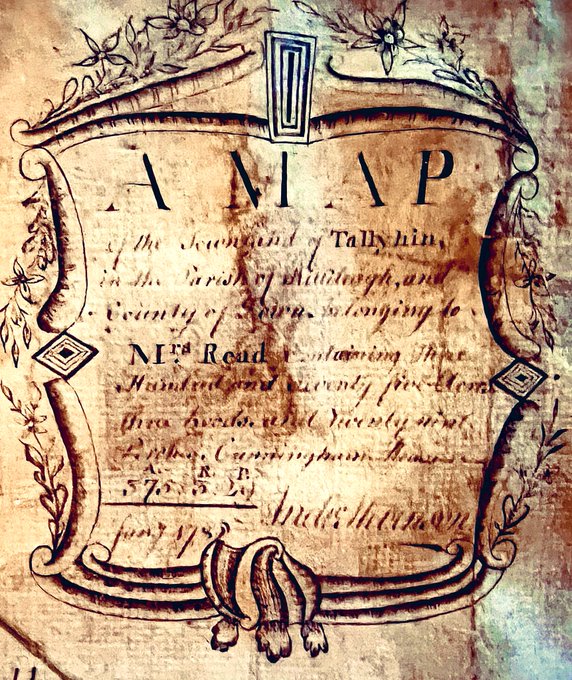 A MAP
of the Townland of Tallyhin,
in the Parish of Killileagh, and
County of Down. belonging to
Mrs. Read Containing three
Hundred and Seventy five Acres
three Roods, and Twenty nine
Perches. Cunningham
A. R. P.
375 3 29
Jany